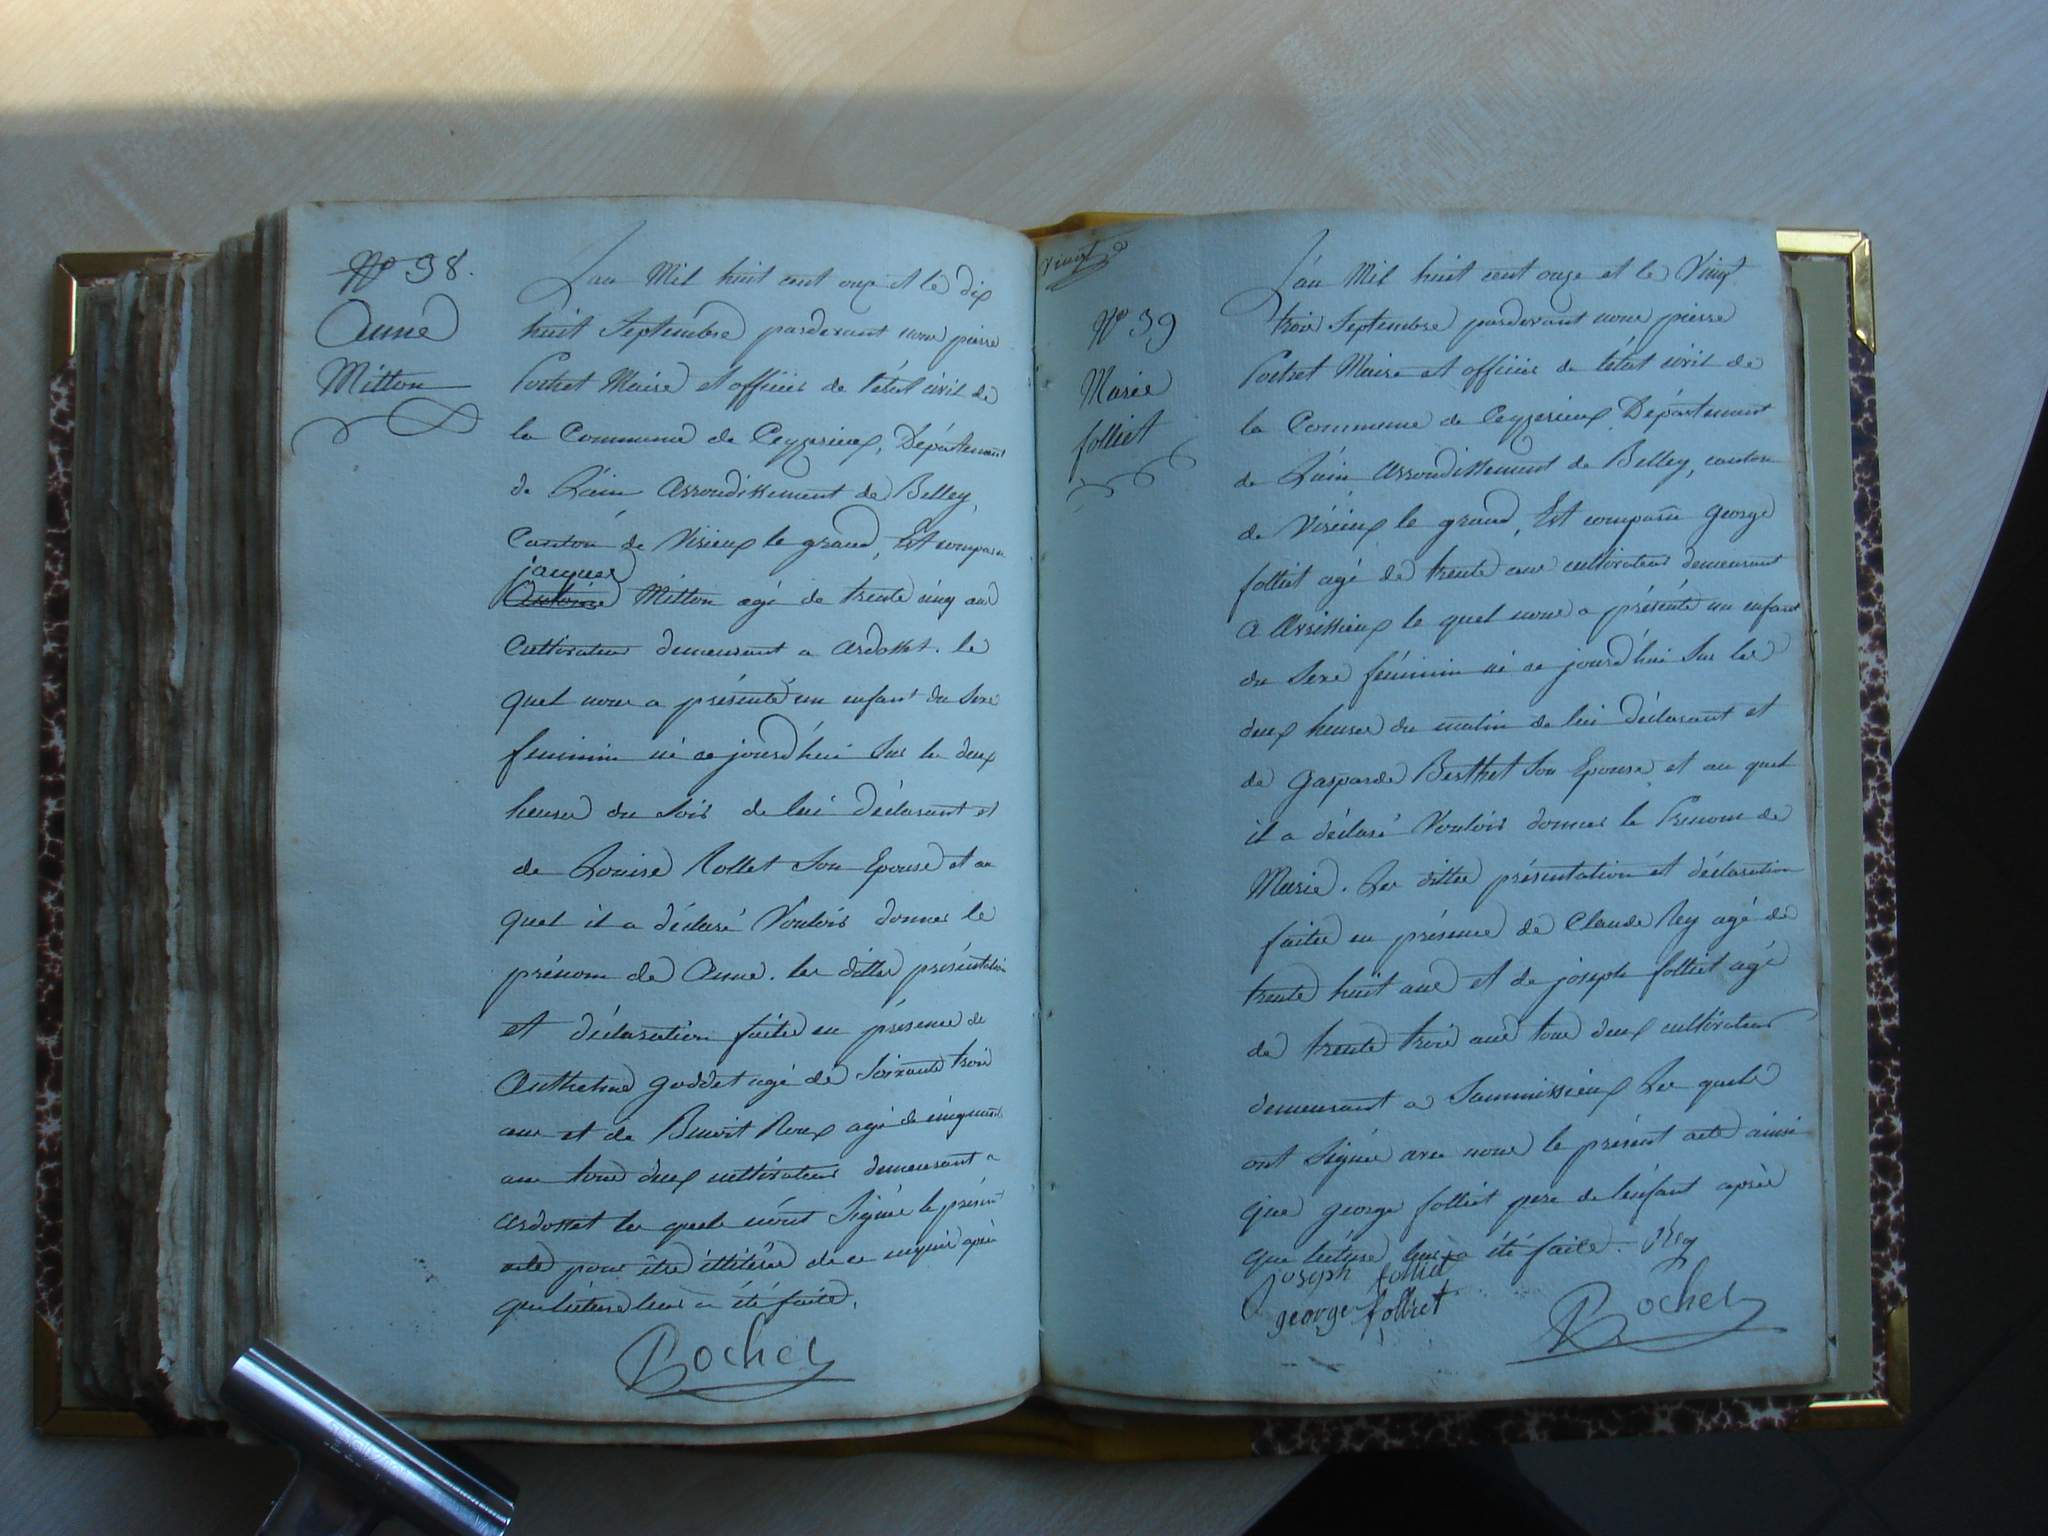 N° 38.
Anne
Mitton
L'an Mil huit cent onze et le dix
huit Septembre pardevant nous pierre
Portret Maire et officier de l'état civil de
la Commune de Ceyzerieux, Département
de L'ain Arrondissement de Belley,
Canton de Virieux le grand, Est comparu
jacques
Antoine Mitton agé de trente cinq ans
Cultivateur demeurant a ardosset. le
quel nous a présenté un enfant du Sexe
feminin né ce jourd'hui Sur les deux
heures du Soir de lui Déclarant et
de Louise Rollet Son Epouse et au
quel il a déclaré Vouloir donner le
prénom de Anne. les dittes présentation
et déclaration faites en présence de
Anthelme goddet agé de Soixante trois
ans et de Benoit Roux agé de cinquante
ans tous deux cultivateurs demeurant a
ardosset les quels n'ont Signé le présent
acte pour être illitérés de ce enquis après
que lecture leur a été faite.
Bochet
vingt
N° 39
Marie
folliet
L'an Mil huit cent onze et le Vingt
trois Septembre pardevant nous pierre
Portret Maire et officier de l'état civil de
la Commune de Ceyzerieux Département
de L'ain Arrondissement de Belley, canton
de Virieux le grand, Est comparu george
folliet agé de trente ans cultivateur demeurant
a Avrissieux le quel nous a présenté un enfant
du Sexe féminin né ce jourd'hui Sur les
deux heures du matin de lui Déclarant et
de gasparde Berthet Son Epouse et au quel
il a déclaré Vouloir donner le Prenom de
Marie. Les dittes présentation et déclaration
faites en présence de Claude Rey agé de
trente huit ans et de joseph folliet agé
de trente trois ans tous deux cultivateurs
demeurant a Les quels
ont Signé avec nous le présent acte ainsi
que george folliet pere de l'enfant après
que lecture leur a été faite. Rey
joseph folliet
george folliet
Bochet